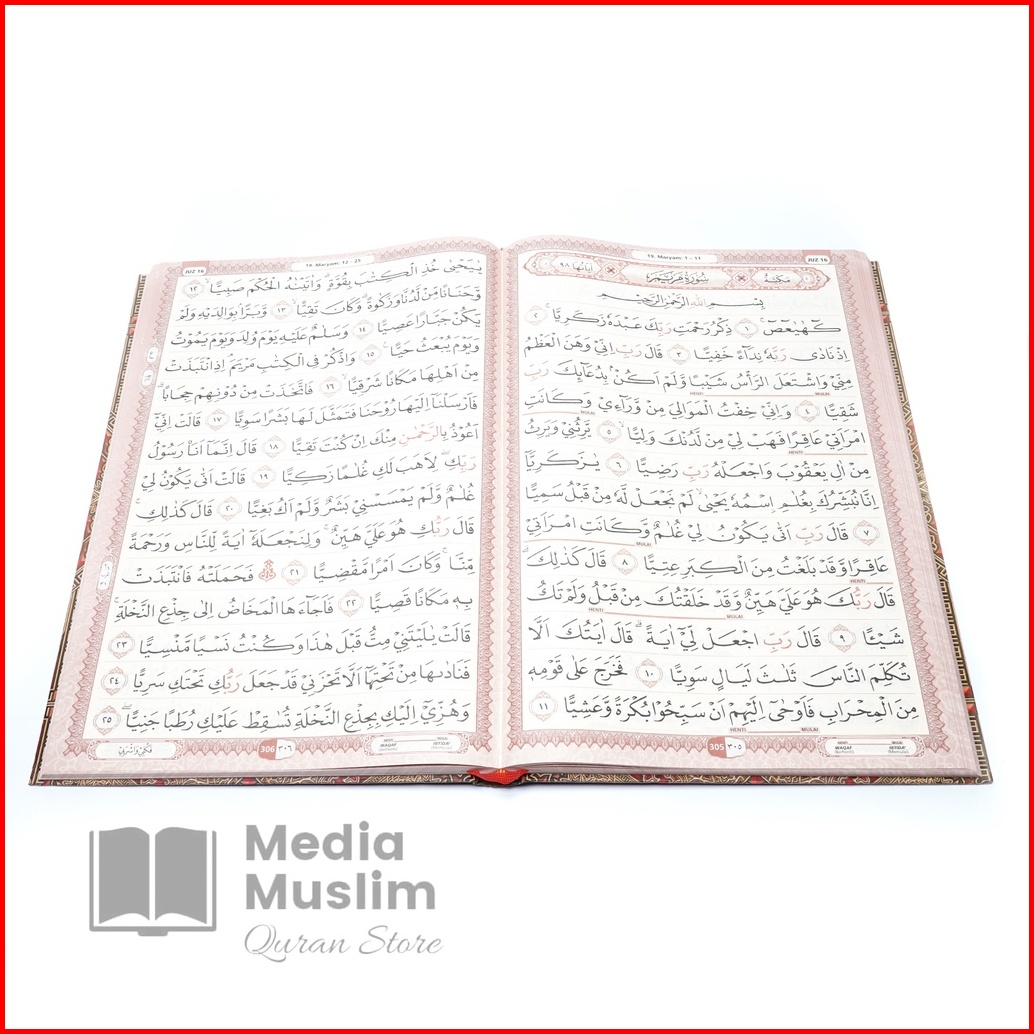 19. Maryam: 1 - 11
JUZ 16
مَكِّيَّة سُوْرَةُ مَرْيَم اٰيَاتُهَا ٩٨
بِسْمِ اللّٰهِ الرَّحْمٰنِ الرَّحِيْمِ
كۤهٰيٰعۤصۤ ۚ ١ ذِكْرُ رَحْمَتِ رَبِّكَ عَبْدَهٗ زَكَرِيَّا ۚ ٢
اِذْ نَادٰى رَبَّهٗ نِدَاۤءً خَفِيًّا ٣ قَالَ رَبِّ اِنِّيْ وَهَنَ الْعَظْمُ
مِنِّيْ وَاشْتَعَلَ الرَّأْسُ شَيْبًا وَّلَمْ اَكُنْۢ بِدُعَاۤىِٕكَ رَبِّ
HENTI MULAI
شَقِيًّا ٤ وَاِنِّيْ خِفْتُ الْمَوَالِيَ مِنْ وَّرَاۤءِيْ وَكَانَتِ
MULAI
امْرَاَتِيْ عَاقِرًا فَهَبْ لِيْ مِنْ لَّدُنْكَ وَلِيًّا ۙ ٥ يَّرِثُنِيْ وَيَرِثُ
HENTI
مِنْ اٰلِ يَعْقُوْبَ وَاجْعَلْهُ رَبِّ رَضِيًّا ٦ يٰزَكَرِيَّآ
اِنَّا نُبَشِّرُكَ بِغُلٰمِ ِۨاسْمُهٗ يَحْيٰىۙ لَمْ نَجْعَلْ لَّهٗ مِنْ قَبْلُ سَمِيًّا
٧ قَالَ رَبِّ اَنّٰى يَكُوْنُ لِيْ غُلٰمٌ وَّكَانَتِ امْرَاَتِيْ
MULAI
عَاقِرًا وَّقَدْ بَلَغْتُ مِنَ الْكِبَرِ عِتِيًّا ٨ قَالَ كَذٰلِكَۗ
HENTI
قَالَ رَبُّكَ هُوَ عَلَيَّ هَيِّنٌ وَّقَدْ خَلَقْتُكَ مِنْ قَبْلُ وَلَمْ تَكُ
HENTI MULAI
شَيْـًٔا ٩ قَالَ رَبِّ اجْعَلْ لِّيْٓ اٰيَةً ۗقَالَ اٰيَتُكَ اَلَّا
تُكَلِّمَ النَّاسَ ثَلٰثَ لَيَالٍ سَوِيًّا ١٠ فَخَرَجَ عَلٰى قَوْمِهٖ
مِنَ الْمِحْرَابِ فَاَوْحٰٓى اِلَيْهِمْ اَنْ سَبِّحُوْا بُكْرَةً وَّعَشِيًّا ١١
HENTI MULAI
305 ٣٠٥
HENTI WAQAF (Berhenti) MULAI IBTIDA' (Memulai)
JUZ 16
19. Maryam: 12 - 25
يٰيَحْيٰى خُذِ الْكِتٰبَ بِقُوَّةٍ ۗوَاٰتَيْنٰهُ الْحُكْمَ صَبِيًّاۙ ١٢
وَّحَنَانًا مِّنْ لَّدُنَّا وَزَكٰوةً ۗوَكَانَ تَقِيًّا ۙ ١٣ وَّبَرًّاۢ بِوَالِدَيْهِ وَلَمْ
يَكُنْ جَبَّارًا عَصِيًّا ١٤ وَسَلٰمٌ عَلَيْهِ يَوْمَ وُلِدَ وَيَوْمَ يَمُوْتُ
وَيَوْمَ يُبْعَثُ حَيًّا ۗ ١٥ وَاذْكُرْ فِى الْكِتٰبِ مَرْيَمَۘ اِذِ انْتَبَذَتْ
مِنْ اَهْلِهَا مَكَانًا شَرْقِيًّا ۙ ١٦ فَاتَّخَذَتْ مِنْ دُوْنِهِمْ حِجَابًاۗ
فَاَرْسَلْنَآ اِلَيْهَا رُوْحَنَا فَتَمَثَّلَ لَهَا بَشَرًا سَوِيًّا ١٧ قَالَتْ اِنِّيْٓ
اَعُوْذُ بِالرَّحْمٰنِ مِنْكَ اِنْ كُنْتَ تَقِيًّا ١٨ قَالَ اِنَّمَآ اَنَا۠ رَسُوْلُ
رَبِّكِۖ لِاَهَبَ لَكِ غُلٰمًا زَكِيًّا ١٩ قَالَتْ اَنّٰى يَكُوْنُ لِيْ
غُلٰمٌ وَّلَمْ يَمْسَسْنِيْ بَشَرٌ وَّلَمْ اَكُ بَغِيًّا ٢٠ قَالَ كَذٰلِكِۚ
قَالَ رَبُّكِ هُوَ عَلَيَّ هَيِّنٌۚ وَلِنَجْعَلَهٗٓ اٰيَةً لِّلنَّاسِ وَرَحْمَةً
مِّنَّاۚ وَكَانَ اَمْرًا مَّقْضِيًّا ٢١ فَحَمَلَتْهُ فَانْتَبَذَتْ
بِهٖ مَكَانًا قَصِيًّا ٢٢ فَاَجَاۤءَهَا الْمَخَاضُ اِلٰى جِذْعِ النَّخْلَةِۚ
قَالَتْ يٰلَيْتَنِيْ مِتُّ قَبْلَ هٰذَا وَكُنْتُ نَسْيًا مَّنْسِيًّا ٢٣
فَنَادٰىهَا مِنْ تَحْتِهَآ اَلَّا تَحْزَنِيْ قَدْ جَعَلَ رَبُّكِ تَحْتَكِ سَرِيًّا ٢٤
وَهُزِّيْٓ اِلَيْكِ بِجِذْعِ النَّخْلَةِ تُسٰقِطْ عَلَيْكِ رُطَبًا جَنِيًّاۖ ٢٥
فَكُلِيْ وَاشْرَبِيْ
306 ٣٠٦
HENTI WAQAF (Berhenti) MULAI IBTIDA' (Memulai)
Media
Muslim
Quran Store